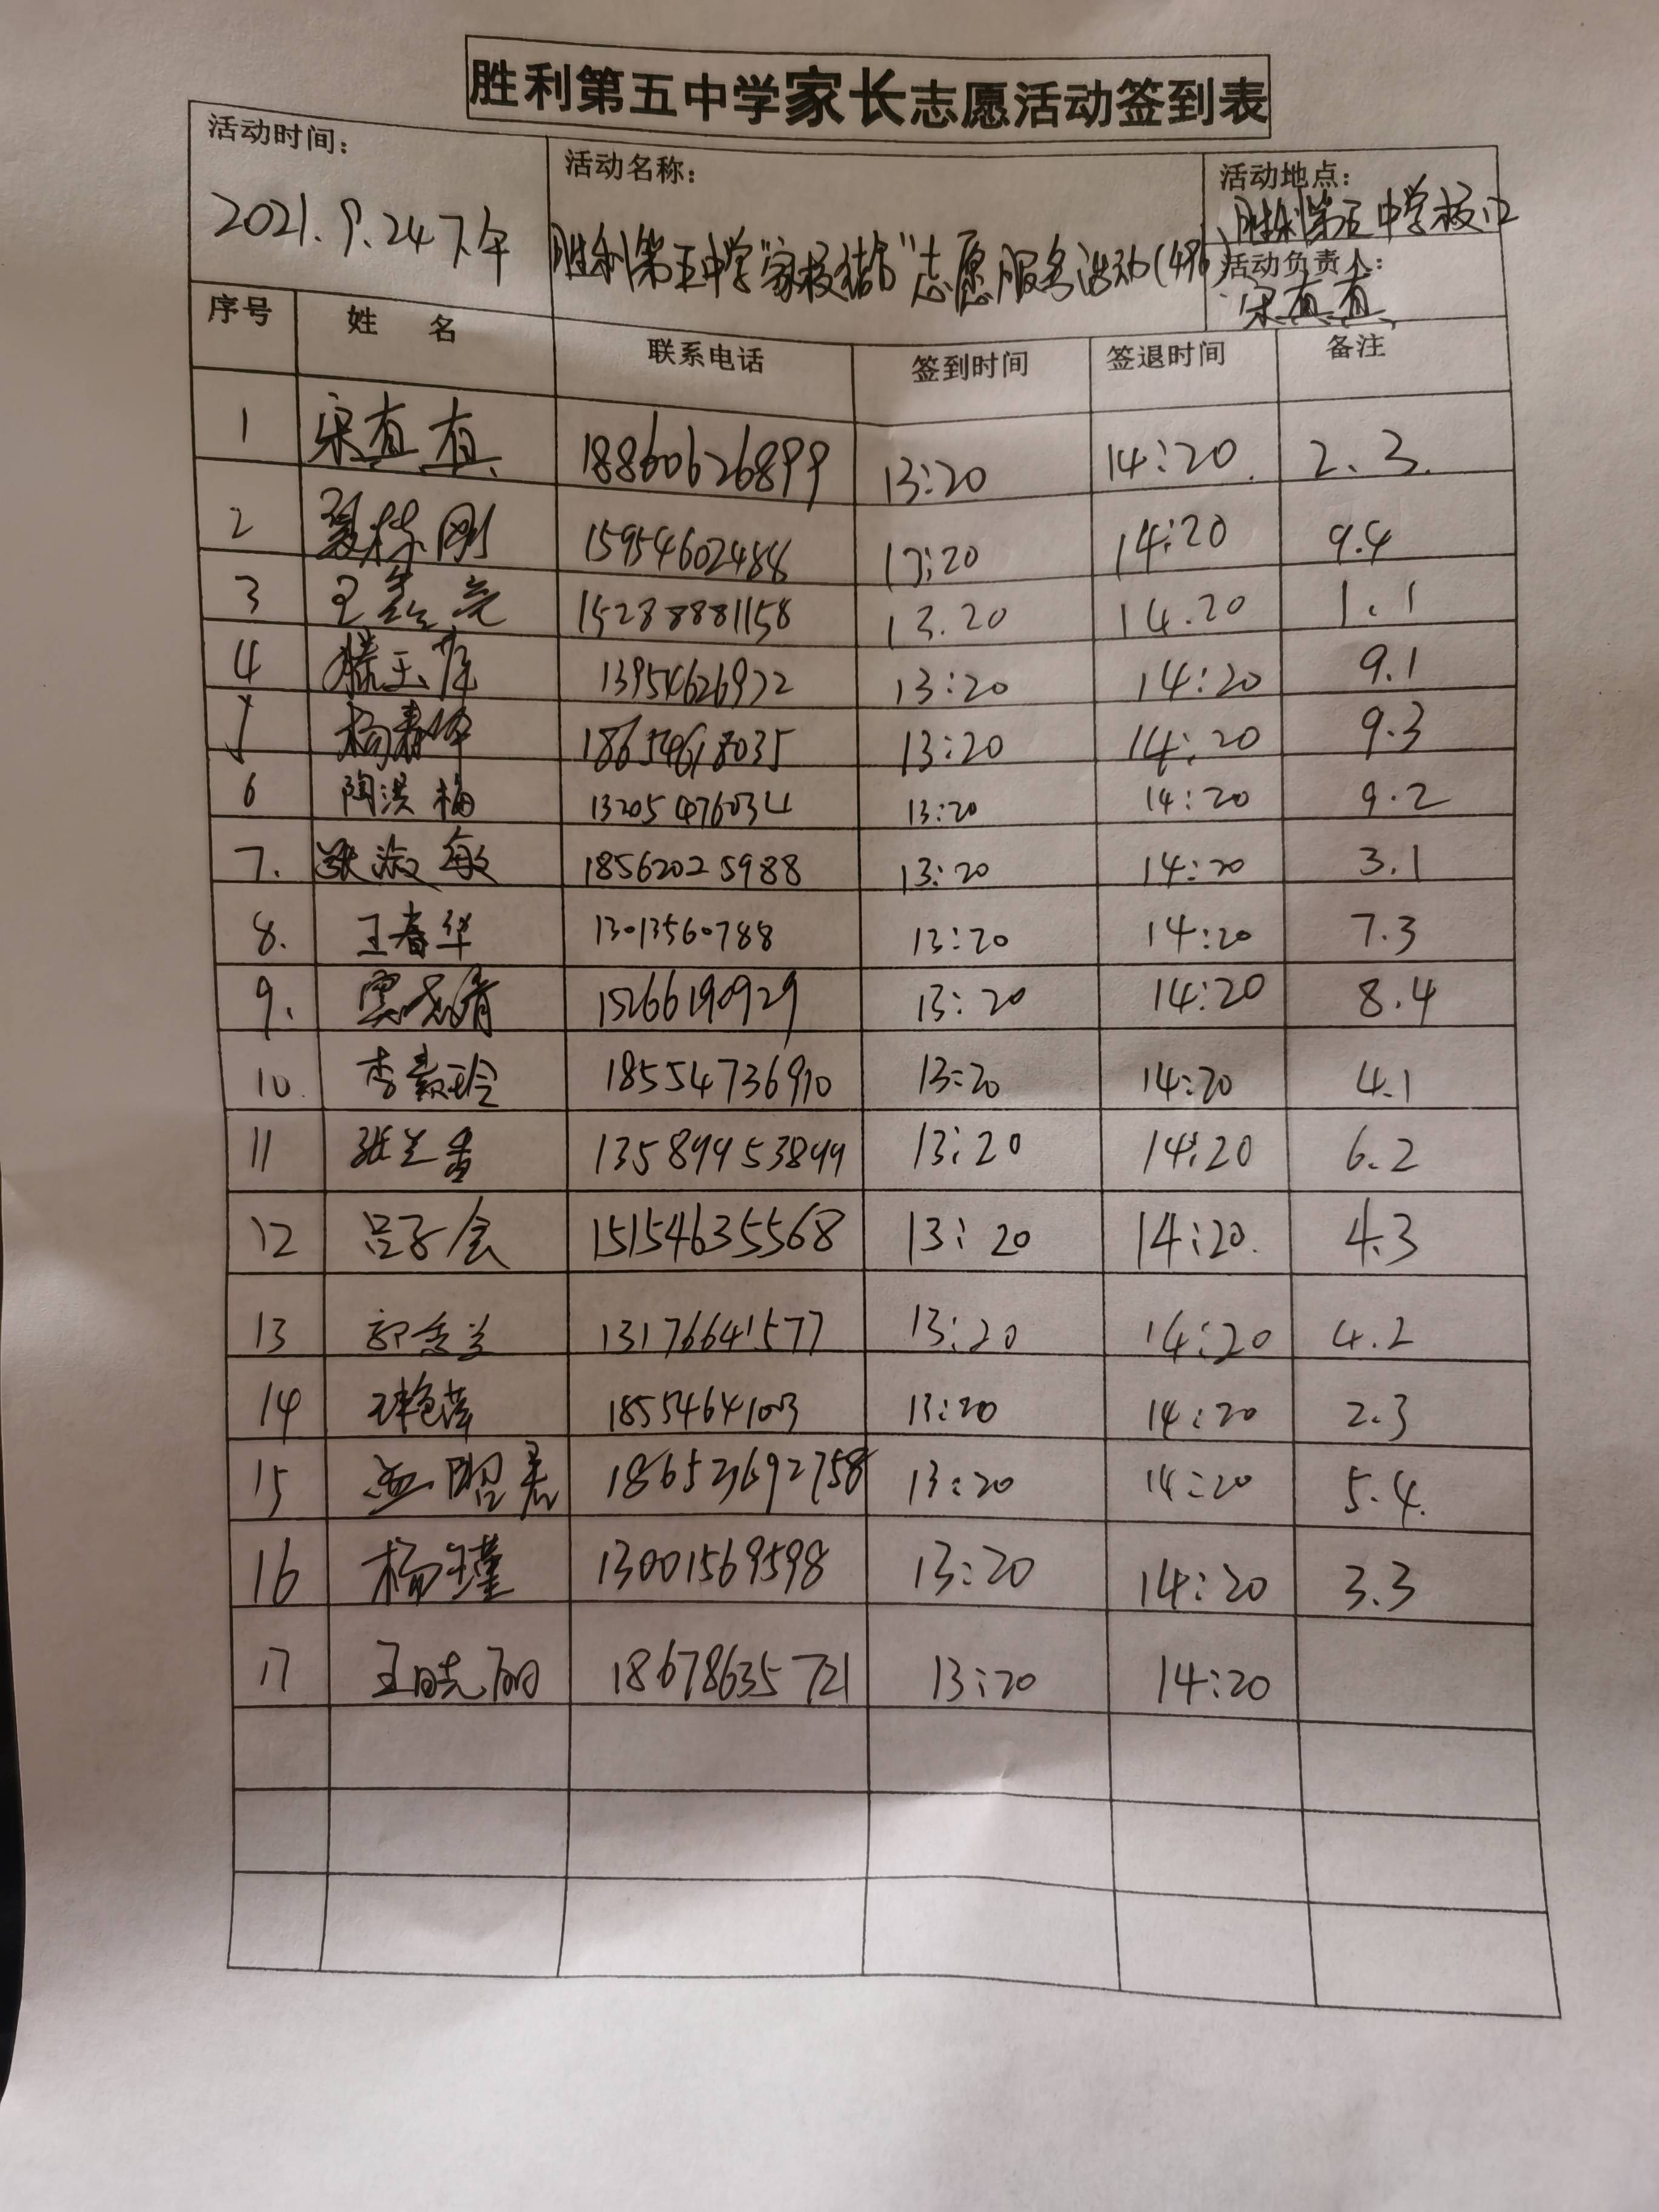 胜利第五中学家长志愿活动签到表
活动时间： 活动名称： 活动地点：
2021.9.24下午 胜利第五中学"家校携手"志愿服务活动(496) 胜利第五中学校门口
活动负责人：
宋真真
序号 姓 名 联系电话 签到时间 签退时间 备注
1 宋真真 18860626899 13:20 14:20. 2.3.
2 刚 15954602488 13:20 14:20 9.4
3 王 亮 15288881158 13.20 14.20 1.1
4 滕玉萍 13954626922 13:20 14:20 9.1
5 杨春华 18654618035 13:20 14:20 9.3
6 陶洪梅 13205476034 13:20 14:20 9.2
7. 张淑敏 18562025988 13:20 14:20 3.1
8. 王春华 13013560788 13:20 14:20 7.3
9. 15266190929 13:20 14:20 8.4
10. 李素玲 18554736910 13:20 14:20 4.1
11 张兰香 13:20 14:20 6.2
12 吕子会 15154635568 13:20 14:20. 4.3
13 郭 兰 13176641577 13:20 14:20 4.2
14 18554641003 13:20 14:20 2.3
15 孟昭 13:20 14:20 5.4.
16 杨瑾 13001569598 13:20 14:20 3.3
17 王晓丽 18678635721 13:20 14:20